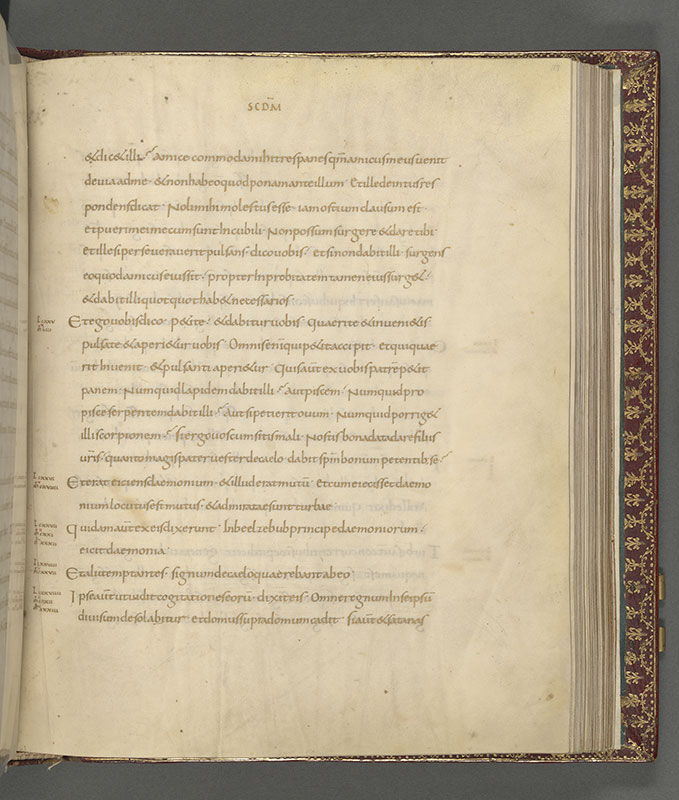 SCDM̄
& dic& illi amice commoda mihi tres panes qm̄ amicus meus venit
de via ad me · & non habeo quod ponam ante illum · Et ille deintus res
pondens dicat · Noli mihi molestus esse · iam ostium clausum est ·
et pueri mei mecum sunt In cubili · Non possum surgere & dare tibi
et ille si perseveraverit pulsans · dico vobis · et si non dabit illi · surgens
eo quod amicus eius sit · propter Inprobitatem tamen eius surg& ·
& dabit illi quotquot hab& necessarios ·
Et ego vobis dico · p&ite · & dabitur vobis · Quaerite & inveni&is
pulsate & aperi&ur vobis · Omnis enī qui p&it accipit · et qui quae
rit Invenit · & pulsanti aperi&ur · Quis aūt ex vobis patrē p&it
panem · Numquid lapidem dabit illi · aut piscem · Numquid pro
pisce serpentem dabit illi · aut si petierit ovum · Numquid porrig&
illi scorpionem · si ergo vos cum sitis mali · Nostis bona data dare filiis
vr̄is · quanto magis pater vester de caelo · dabit spm̄ bonum petentib; se ·
Et erat eiciens daemonium · & illud erat mutū · Et cum eiecisset daemo
nium locutus est mutus · & admiratae sunt turbae
Quidam aūt ex eis dixerunt · In beelzebub principe daemoniorum ·
eicit daemonia ·
Et alii temptantes · signum de caelo quaerebant ab eo
Ipse aūt ut vidit cogitationes eorū · dixit eis · Omne regnum In se ipsū
divisum desolabitur · et domus supra domum cadit · si aūt & satanas